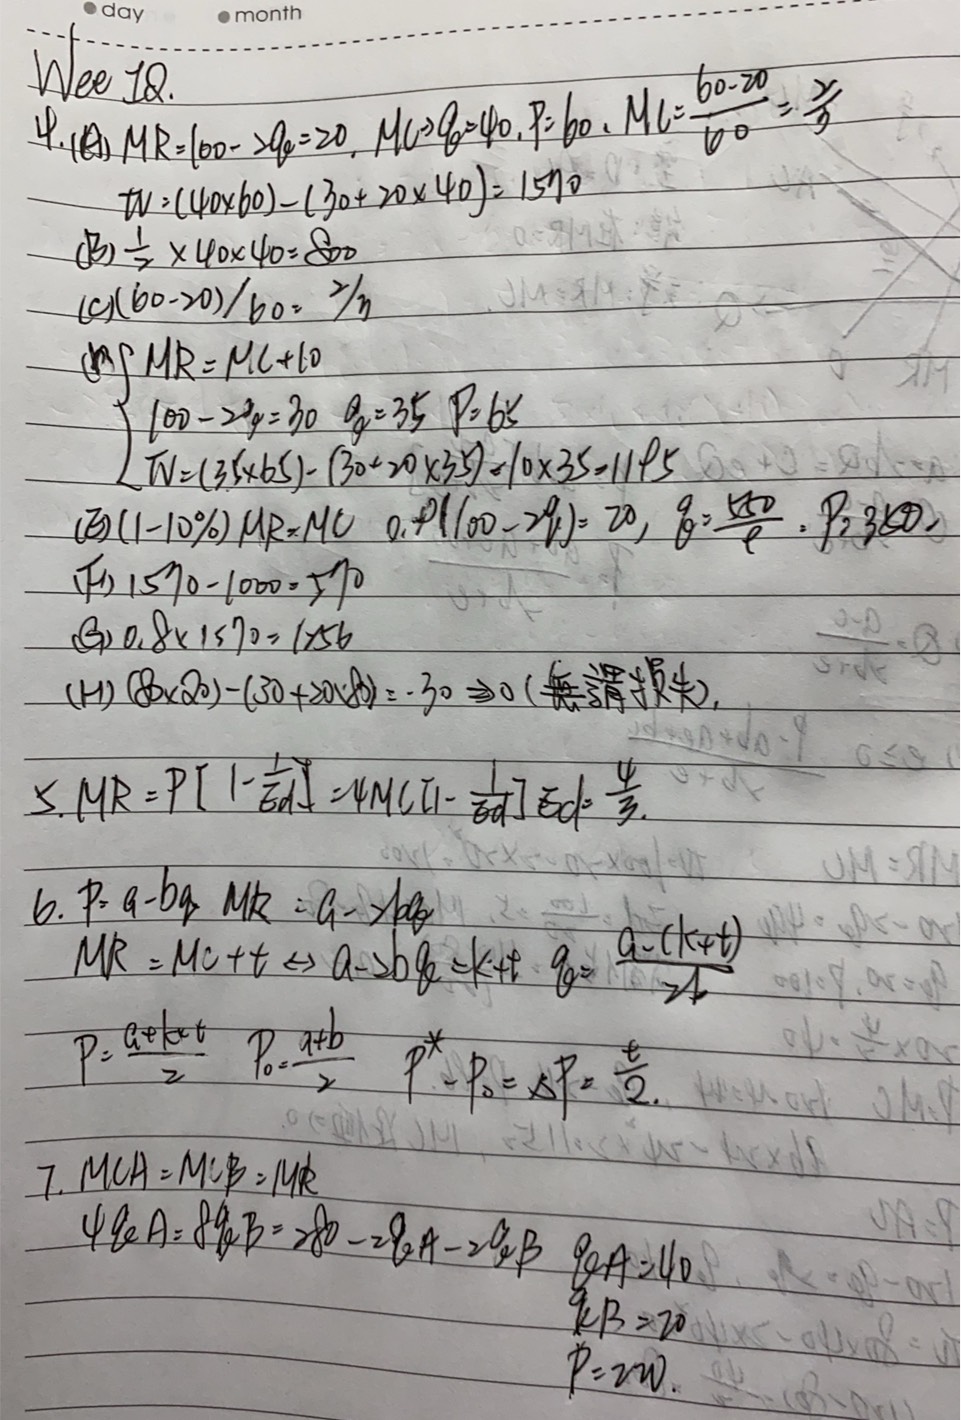 day month
Wee 12.
4.(A) MR=100-2q=20. MC⇒q=40. P=60. MC=(60-20)/60=2/3
TV=(40×60)-(30+20×40)=1570
(B) 1/2 ×40×40=800
(C)(60-20)/60=2/3
(D) MR=MC+10
100-2q=30 q=35 P=65
TV=(35×65)-(30+20×35)-10×35=1195
(E)(1-10%)MR=MC 0.9(100-2q)=20, q=350/9.
(F) 1570-1000=570
(G) 0.8×1570=1256
(H) (80×20)-(30+20×80)=-30⇒0(無謂損失).
5. MR=P[1-1/Ed]=4MC[1-1/Ed] Ed=4/3.
6. P=a-bq MR=a-2bq
MR=MC+t⇔a-2bq=k+t q=(a-(k+t))/2b
P=(a+k+t)/2 P₀=(a+b)/2 P*-P₀=△P=t/2.
7. MCA=MCB=MR
4qA=8qB=280-2qA-2qB qA=40
qB=20
P=220.